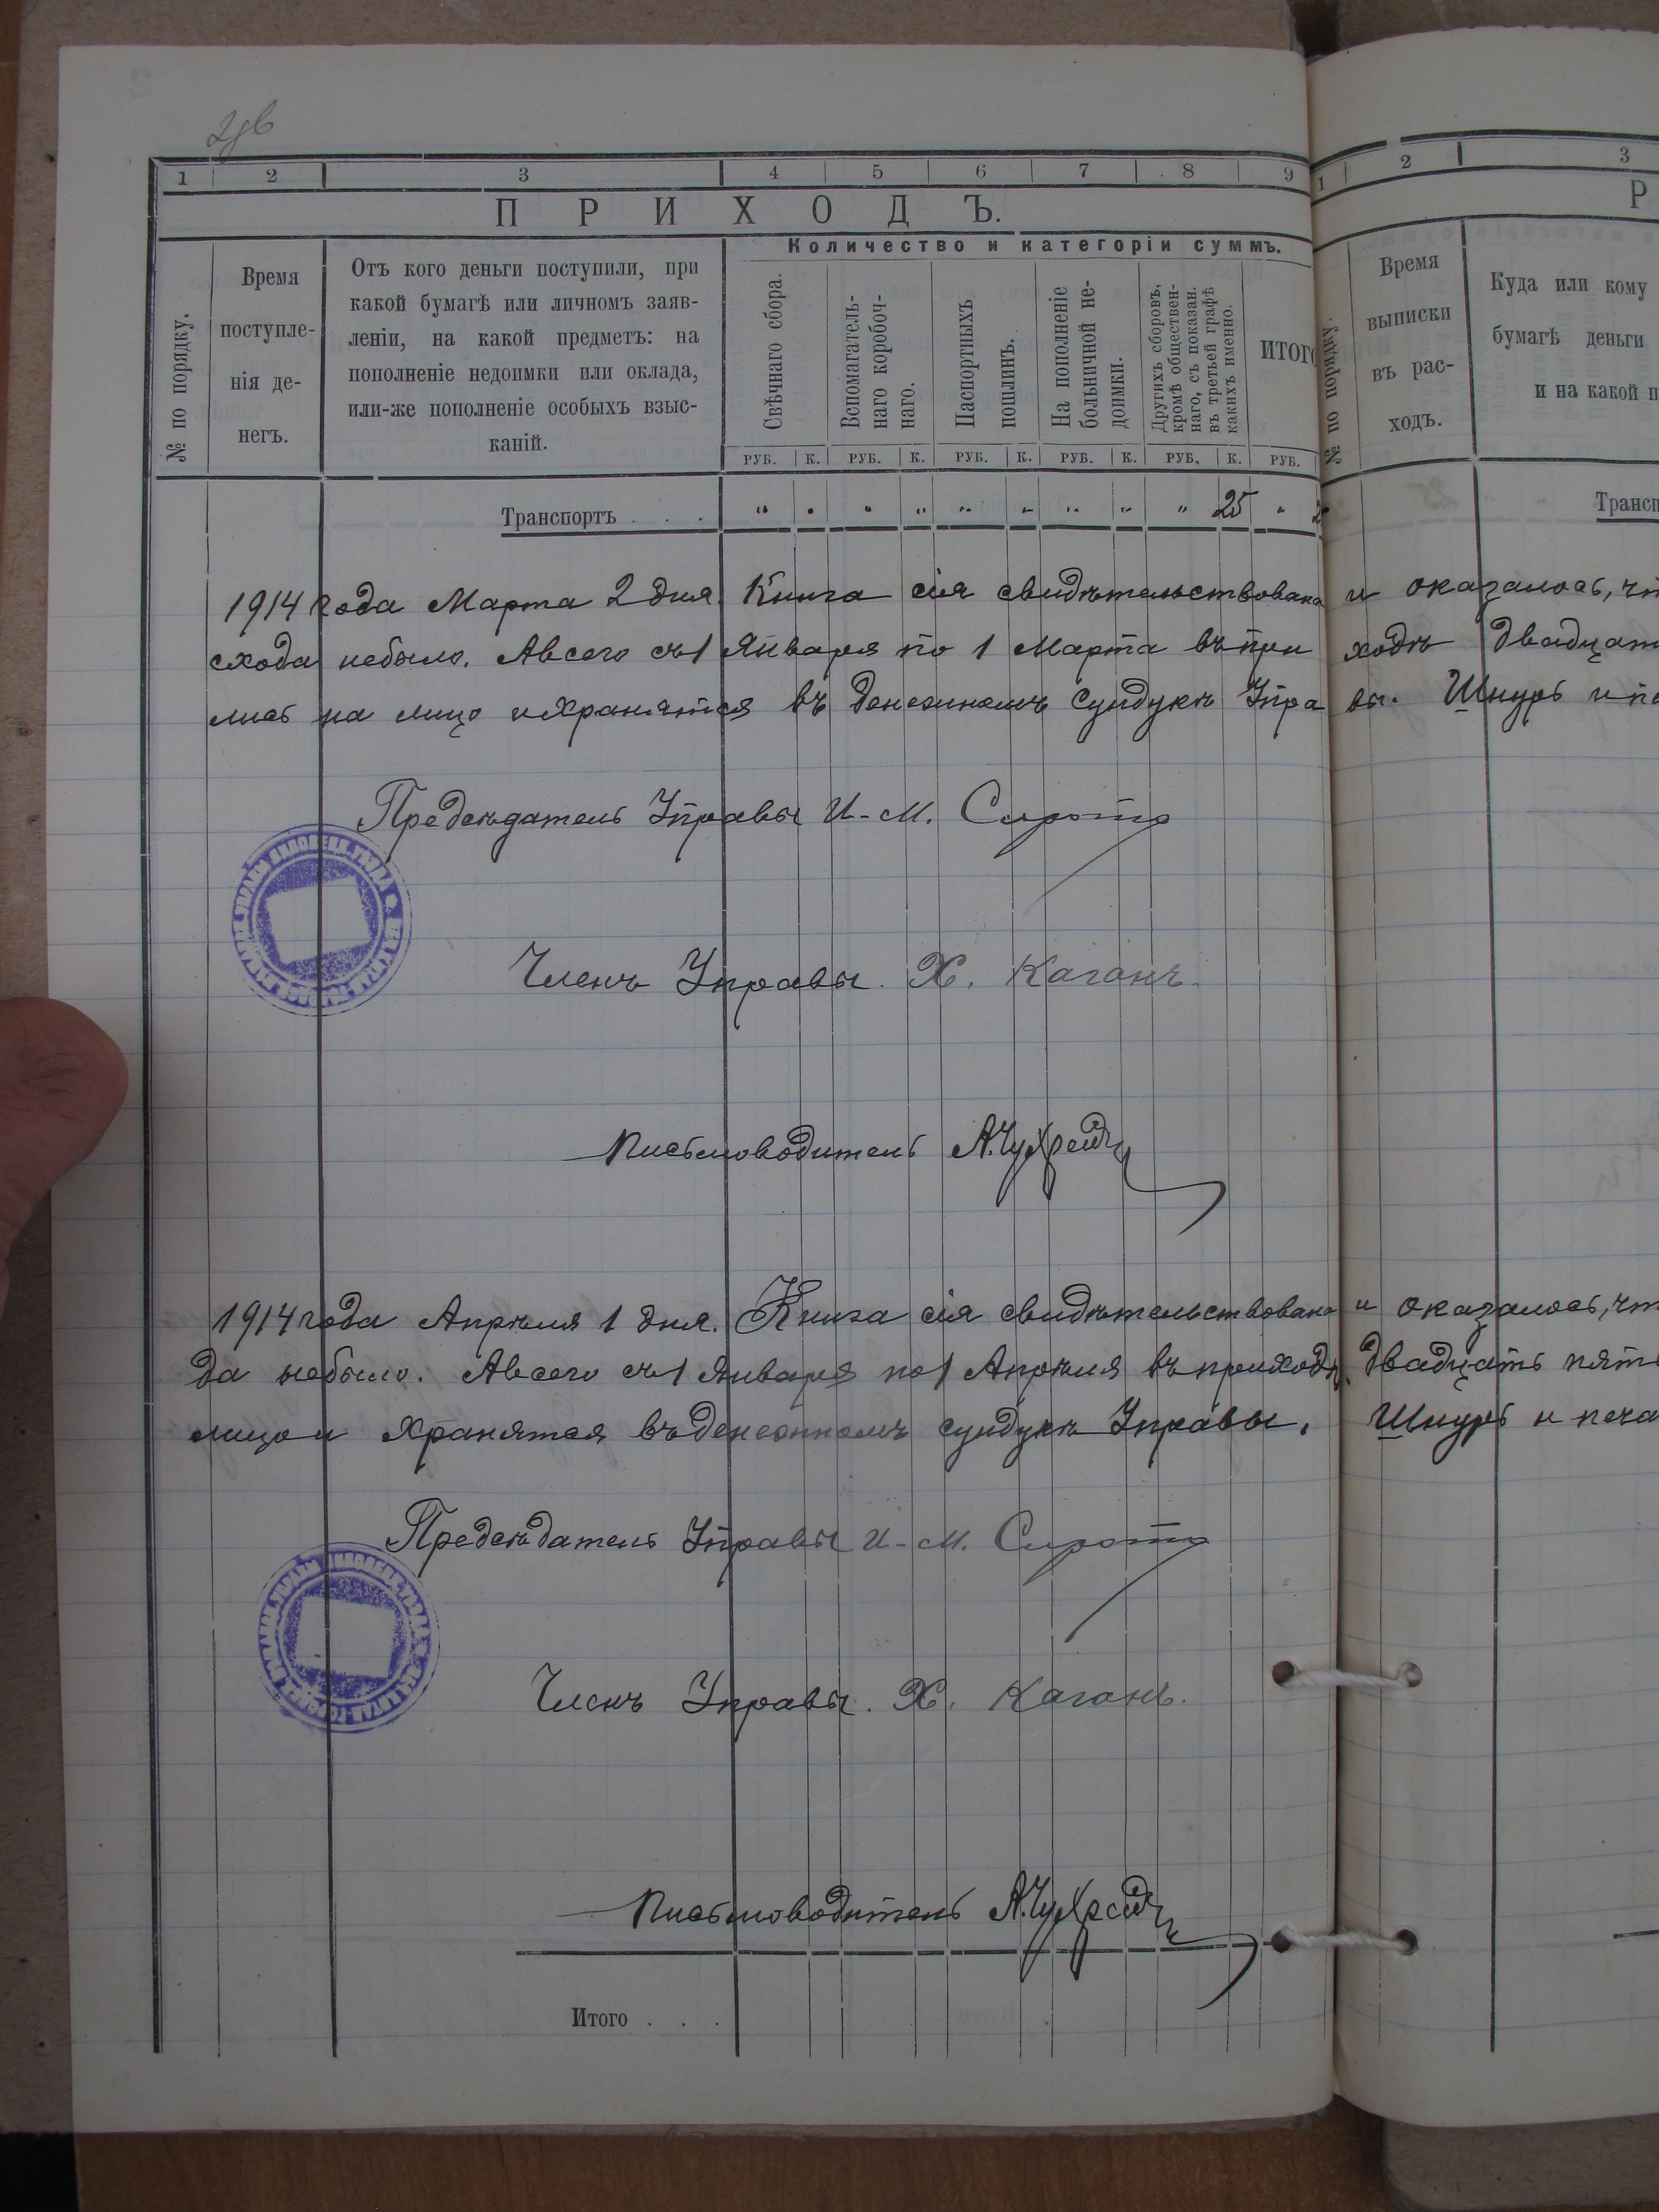 2об
1 2 3 4 5 6 7 8 9
ПРИХОДЪ.
№ по порядку.
Время поступле-нія де-негъ.
Отъ кого деньги поступили, при
какой бумагѣ или личномъ заяв-
леніи, на какой предметъ: на
пополненіе недоимки или оклада,
или-же пополненіе особыхъ взыс-
каній.
Количество и категоріи суммъ.
Свѣчнаго сбора.
Вспомагатель-
наго коробоч-
наго.
Паспортныхъ
пошлинъ.
На пополненіе
больничной не-
доимки.
Другихъ сборовъ,
кромѣ обществен-
наго, съ показан.
въ третьей графѣ
какихъ именно.
ИТОГО
РУБ. К. РУБ. К. РУБ. К. РУБ. К. РУБ. К. РУБ.
Транспортъ . . . " " " " " " " " " 25 "
1914 года Марта 2 дня. Книга сія свидѣтельствована и оказалось, чт
схода небыло. Авсего съ 1 Января по 1 Марта въ при ходѣ двадцат
лись на лицо ихранятся въ денежномъ сундукѣ Упра вы. Шнуръ и пе
Предсѣдатель Управы И-М. Сирота
Членъ Управы. Х. Каганъ.
Письмоводитель
1914 года Апрѣля 1 дня. Книга сія свидѣтельствована и оказалось, чт
да небыло. Авсего съ 1 Января по 1 Апрѣля въ приходѣ двадцать пять
лицо и хранятся въ денежномъ сундукѣ Управы. Шнуръ и печа
Предсѣдатель Управы И-М. Сирота
Членъ Управы. Х. Каганъ.
Письмоводитель
Итого . . .
1 2 3
Р
№ по порядку.
Время
выписки
въ рас-
ходъ.
Куда или кому
бумагѣ деньги
и на какой п
Трансп